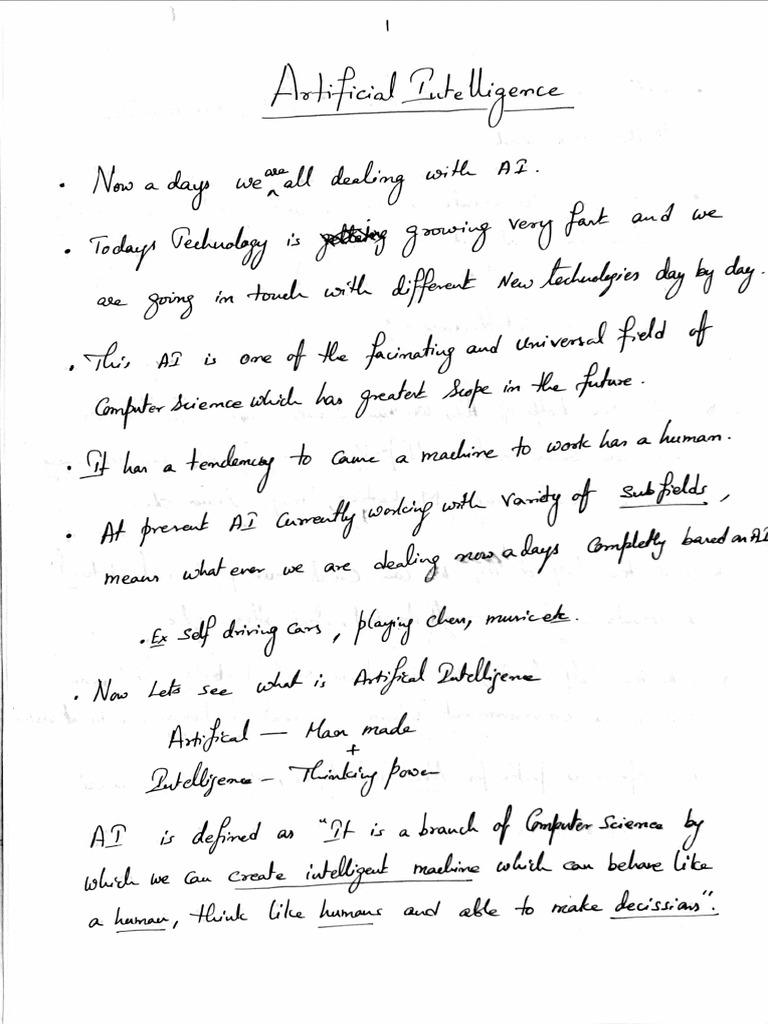 1
Artificial Intelligence
• Now a days we are all dealing with AI.
• Todays Technology is growing very fast and we
are going in touch with different New technologies day by day.
• This AI is one of the facinating and universal field of
Computer Science which has greatest Scope in the future.
• It has a tendency to cause a machine to work has a human.
• At present AI currently working with variety of subfields,
means what ever we are dealing now a days completly based on AI
• Ex self driving cars, playing chess, music etc.
• Now Lets see what is Artifical Intelligence
Artifical — Man made
+
Intelligence – Thinking power
AI is defined as "It is a branch of Computer Science by
which we can create intelligent machine which can behave like
a human, think like humans and able to make decissians".